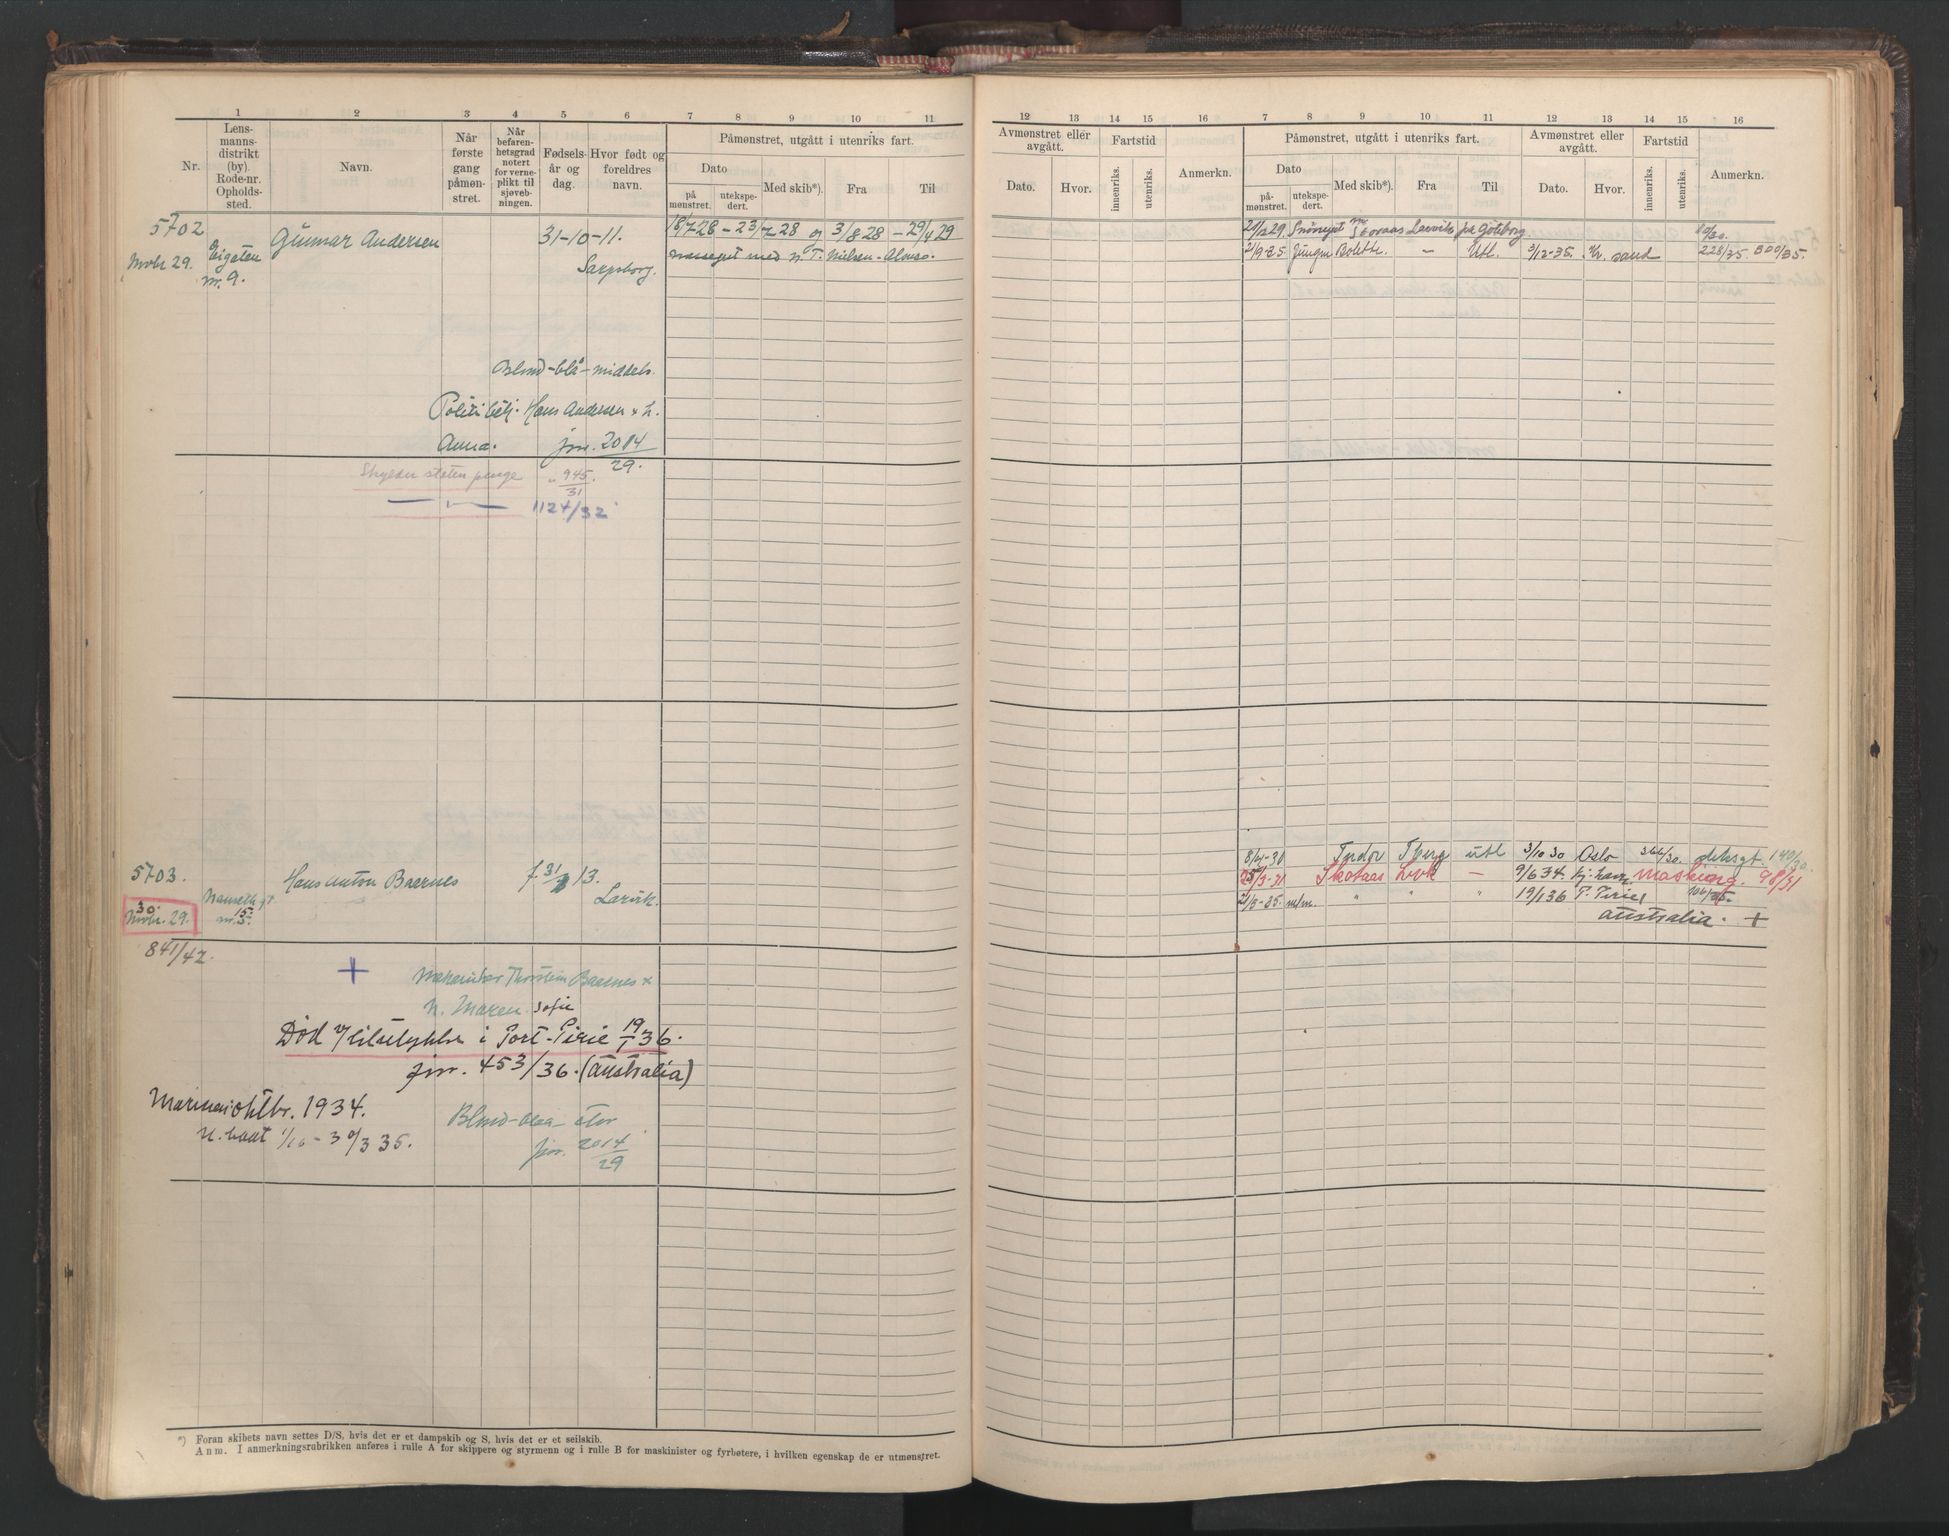 1 2 3 4 5 6 7 8 9 10 11
Nr.
Lens-
manns-
distrikt
(by).
Rode-nr.
Opholds-
sted.
Navn.
Når
første
gang
påmøn-
stret.
Når
befaren-
hetsgrad
notert
for verne-
plikt til
sjøveb-
ningen.
Fødsels-
år og
dag.
Hvor født og
foreldres
navn.
Påmønstret, utgått i utenriks fart.
Dato
på
mønstret.
utekspe-
dert.
Med skib*).
Fra
Til
5702
Gunnar Andersen
31-10-11.
18/7-28 - 23/7-28 og 3/8 28 - 29/4 29
Mvbr 29.
nr. 9.
Sarpsborg.
med N. T. Nielsen-Alonso.
Blond-blå-middels.
Politibetj. Hans Andersen & h.
Anna. jnr. 2014
29.
Skylder staten penge " 945.
31
1124/32
5703.
Hans Anton Baarnes
f. 31/3 13.
Larvik.
30.
Mvbr. 29.
15.
nr. 5.
841/42.
+
Thorstein Baarnes &
h. Maren Sofie
Død v/ ulykke i Port-Pirie 19/1 36.
jnr. 453/36. (Australia)
1934.
1/10-30/3 35.
Blond-blaa-stor
jnr. 2014
29
*) Foran skibets navn settes D/S, hvis det er et dampskib og S, hvis det er et seilskib.
Anm. I anmerkningsrubrikken anføres i rulle A for skippere og styrmenn og i rulle B for maskinister og fyrbøtere, i hvilken egenskap de er utmønstret.
12 13 14 15 16 7 8 9 10 11 12 13 14 15 16
Avmønstret eller
avgått.
Dato.
Hvor.
Fartstid
innenriks.
utenriks.
Anmerkn.
Påmønstret, utgått i utenriks fart.
Dato
på-
mønstret.
utekspe-
dert.
Med skib*).
Fra
Til
Avmønstret eller
avgått.
Dato.
Hvor.
Fartstid
innenriks.
utenriks.
Anmerkn.
Larvik på Göteborg.
2/9-35 Jungm Bolette. - Utl. 3/12-35. Kr. sand 228/35. 800/35.
8/4-30 Tudor Tbrg utl 3/10 30 Oslo 366/30. deksgt 140/30.
25/3-31 Skotaas Lvk - 9/6 34 Kj.havn masking. 98/31
2/3-35. m/m. " " " 19/1 36 P. Pirie,
Australia. +